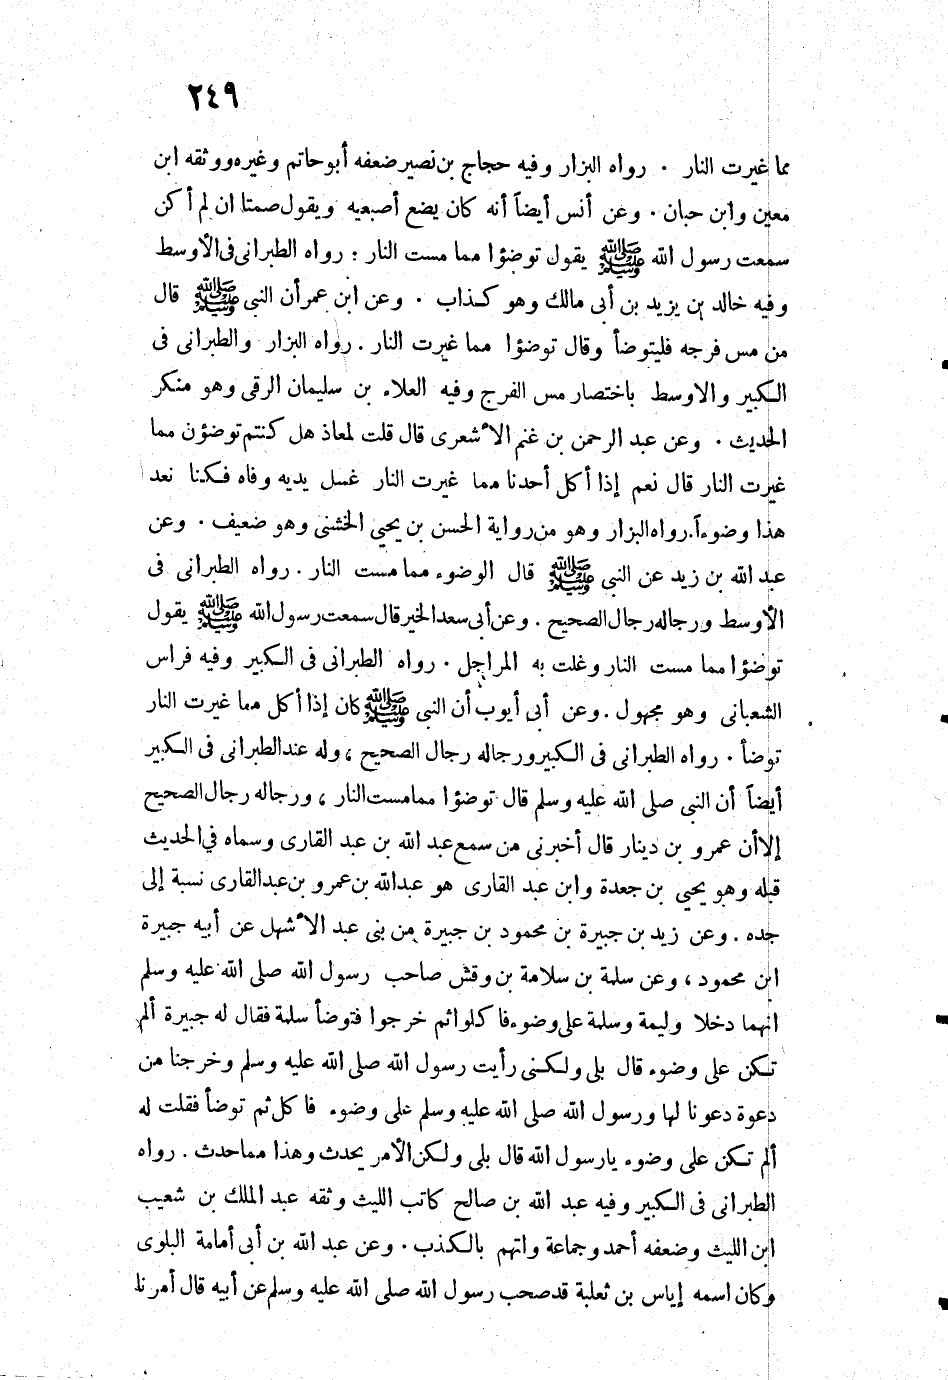 ٢٤٩
مما غيرت النار . رواه البزار وفيه حجاج بن نصير ضعفه أبو حاتم وغيره ووثقه ابن
معين وابن حبان . وعن أنس أيضاً أنه كان يضع أصبعيه ويقول صمتا ان لم أكن
سمعت رسول الله ﷺ يقول توضؤا مما مست النار : رواه الطبرانى فى الأوسط
وفيه خالد بن يزيد بن أبى مالك وهو كذاب . وعن ابن عمر أن النبى ﷺ قال
من مس فرجه فليتوضأ وقال توضؤا مما غيرت النار . رواه البزار والطبرانى فى
الكبير والاوسط باختصار مس الفرج وفيه العلاء بن سليمان الرقى وهو منكر
الحديث . وعن عبد الرحمن بن غنم الأشعرى قال قلت لمعاذ هل كنتم توضؤن مما
غيرت النار قال نعم إذا أكل أحدنا مما غيرت النار غسل يديه وفاه فكنا نعد
هذا وضوءاً. رواه البزار وهو من رواية الحسن بن يحيى الخشنى وهو ضعيف . وعن
عبد الله بن زيد عن النبى ﷺ قال الوضوء مما مست النار . رواه الطبرانى فى
الأوسط ورجاله رجال الصحيح . وعن أبى سعد الخير قال سمعت رسول الله ﷺ يقول
توضؤا مما مست النار وغلت به المراجل . رواه الطبرانى فى الكبير وفيه فراس
الشعبانى وهو مجهول . وعن أبى أيوب أن النبى ﷺ كان إذا أكل مما غيرت النار
توضأ . رواه الطبرانى فى الكبير ورجاله رجال الصحيح ، وله عند الطبرانى فى الكبير
أيضاً أن النبى صلى الله عليه وسلم قال توضؤا مما مست النار ، ورجاله رجال الصحيح
إلا أن عمرو بن دينار قال أخبرنى من سمع عبد الله بن عبد القارى وسماه فى الحديث
قبله وهو يحيى بن جعدة وابن عبد القارى هو عبد الله بن عمرو بن عبد القارى نسبة إلى
جده . وعن زيد بن جبيرة بن محمود بن جبيرة من بنى عبد الأشهل عن أبيه جبيرة
ابن محمود ، وعن سلمة بن سلامة بن وقش صاحب رسول الله صلى الله عليه وسلم
انهما دخلا وليمة وسلمة على وضوء فاكلوا ثم خرجوا فتوضأ سلمة فقال له جبيرة ألم
تكن على وضوء قال بلى ولكنى رأيت رسول الله صلى الله عليه وسلم وخرجنا من
دعوة دعونا لها ورسول الله صلى الله عليه وسلم على وضوء فاكل ثم توضأ فقلت له
ألم تكن على وضوء يارسول الله قال بلى ولكن الأمر يحدث وهذا مما حدث . رواه
الطبرانى فى الكبير وفيه عبد الله بن صالح كاتب الليث وثقه عبد الملك بن شعيب
ابن الليث وضعفه أحمد وجماعة واتهم بالكذب . وعن عبد الله بن أبى أمامة البلوى
وكان اسمه إياس بن ثعلبة قد صحب رسول الله صلى الله عليه وسلم عن أبيه قال أمرنا